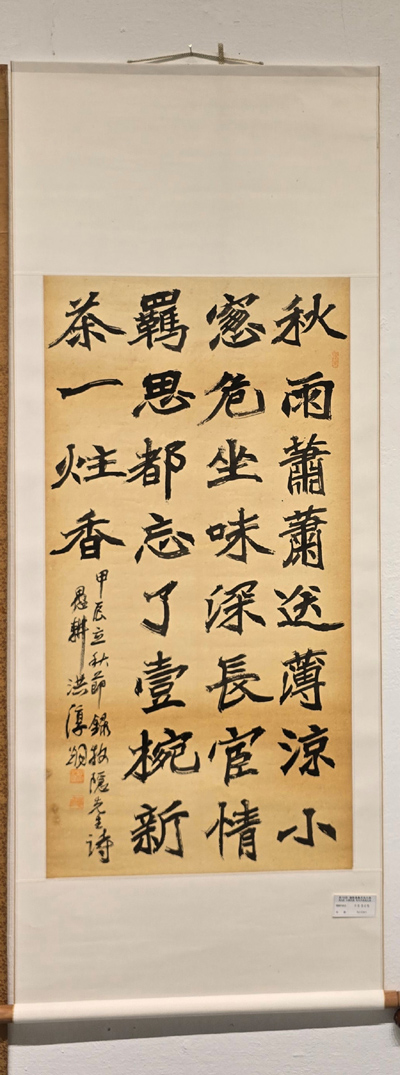 秋雨蕭蕭送薄涼小
窓危坐味深長宦情
羈思都忘了壹椀新
茶一炷香
甲辰立秋節錄牧隱先生詩
愚耕洪淳翊